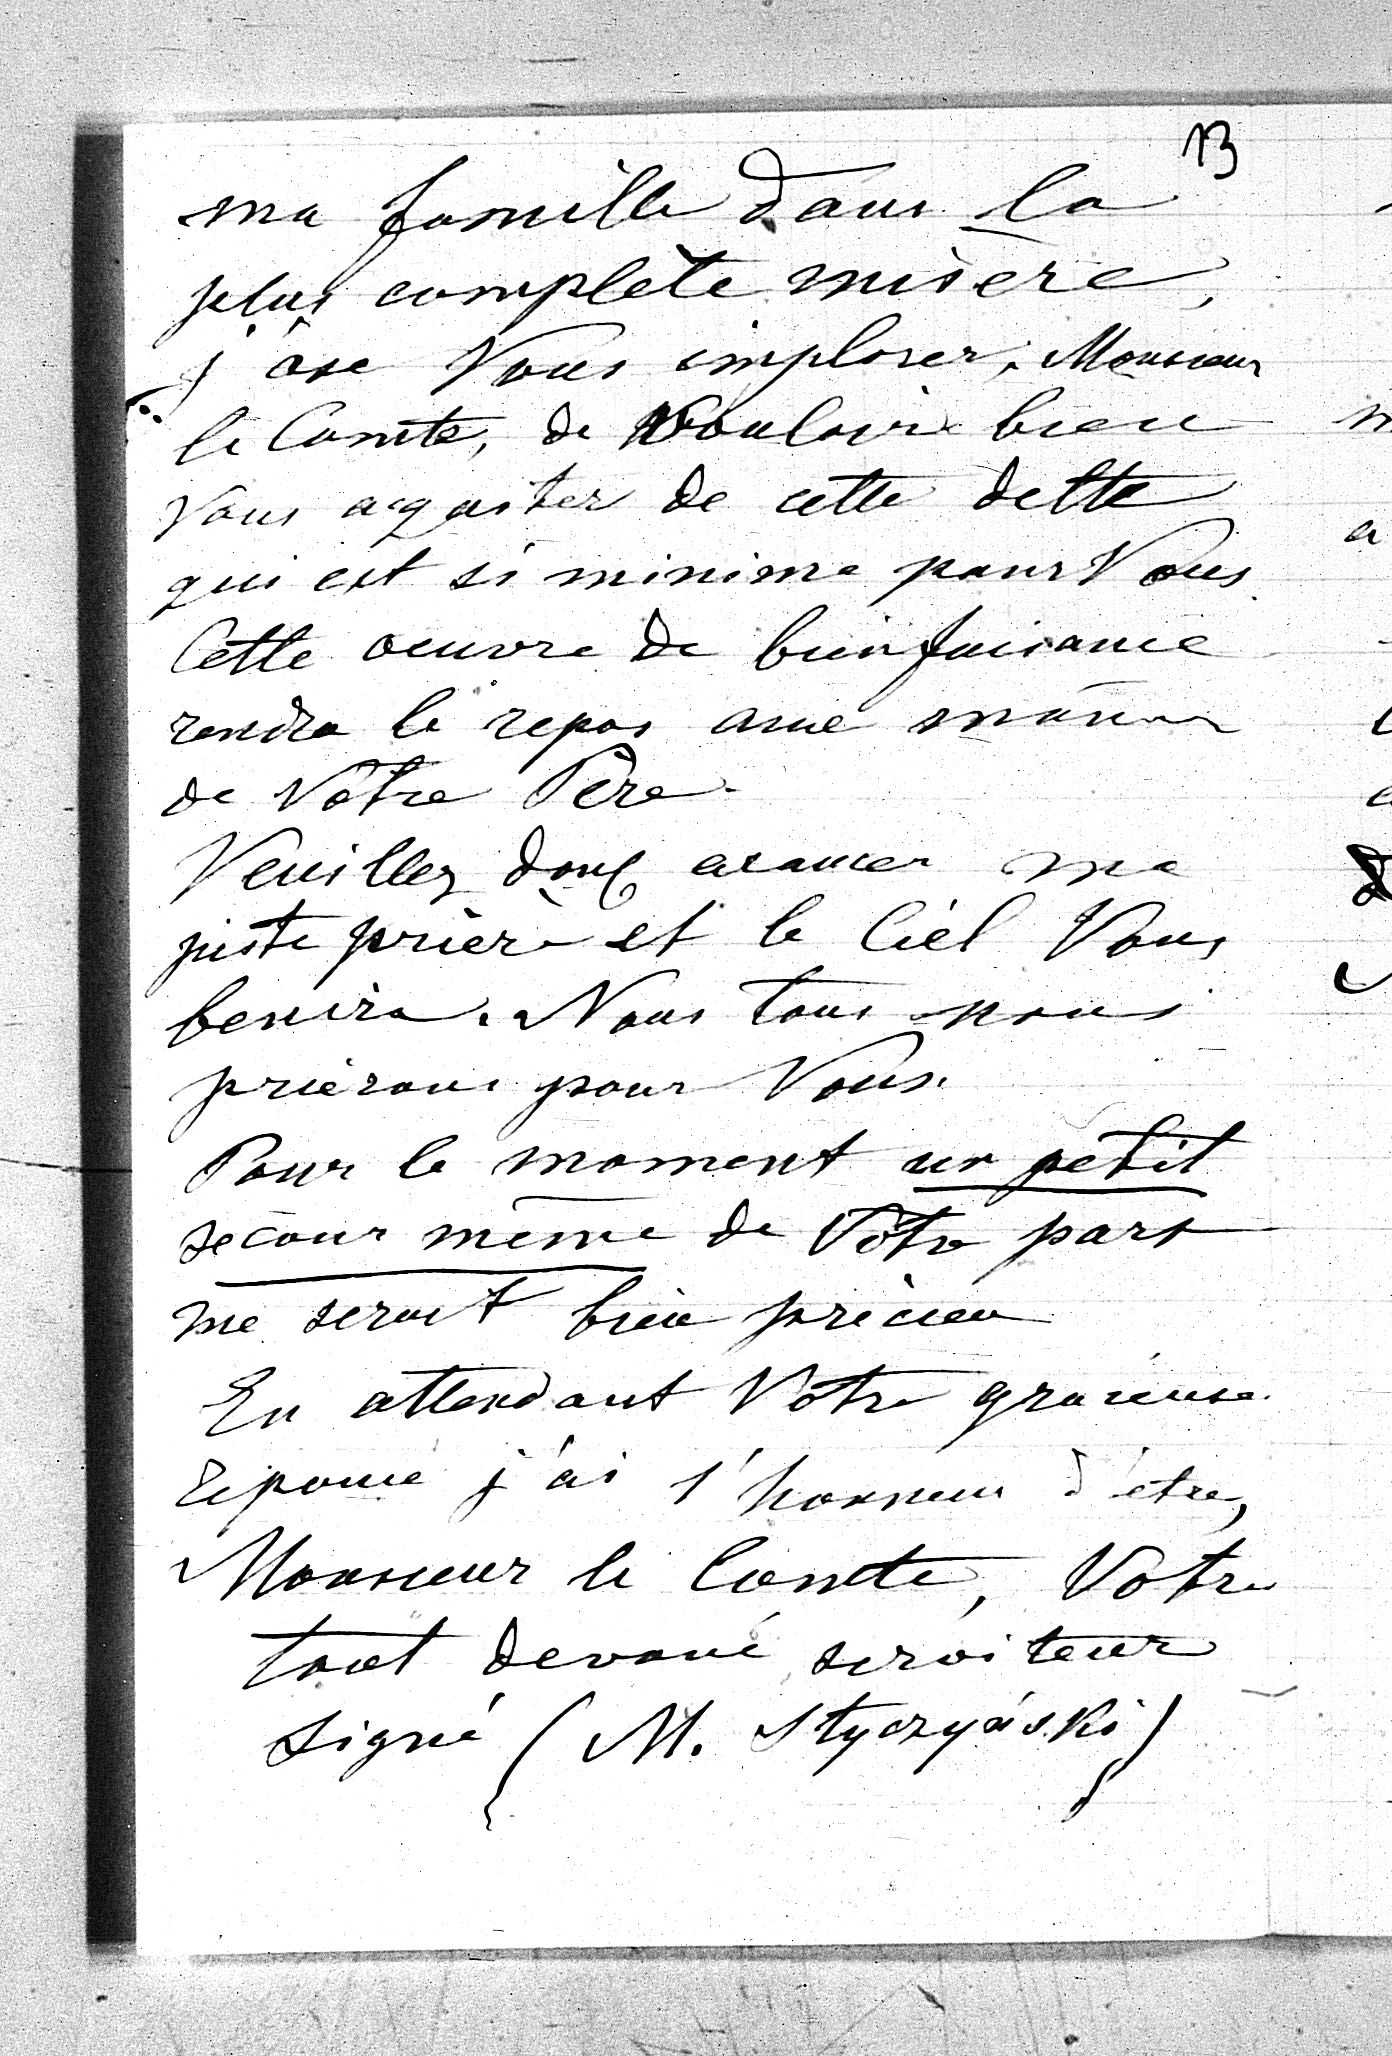 13
ma famille dans la
plus complète misère,
j'ôse Vous implorer, Monsieur
le Comte, de Vouloir bien
Vous aquiter de cette dette
qui est si minime pour Vous.
Cette oeuvre de bienfaisance
rendra le repos aux mânes
de Vôtre Père.
Veuillez donc exaucer ma
juste prière et le Ciél Vous
benira. Nous tous nous
priérons pour Vous.
Pour le moment un petit
secour même de Vôtre part
me serait bien précieu
En attendant Vôtre gracieuse
réponse j'ai l'honneur d'être,
Monsieur le Comte, Votre
tout devoué serviteur
signé (M. Styczyński)